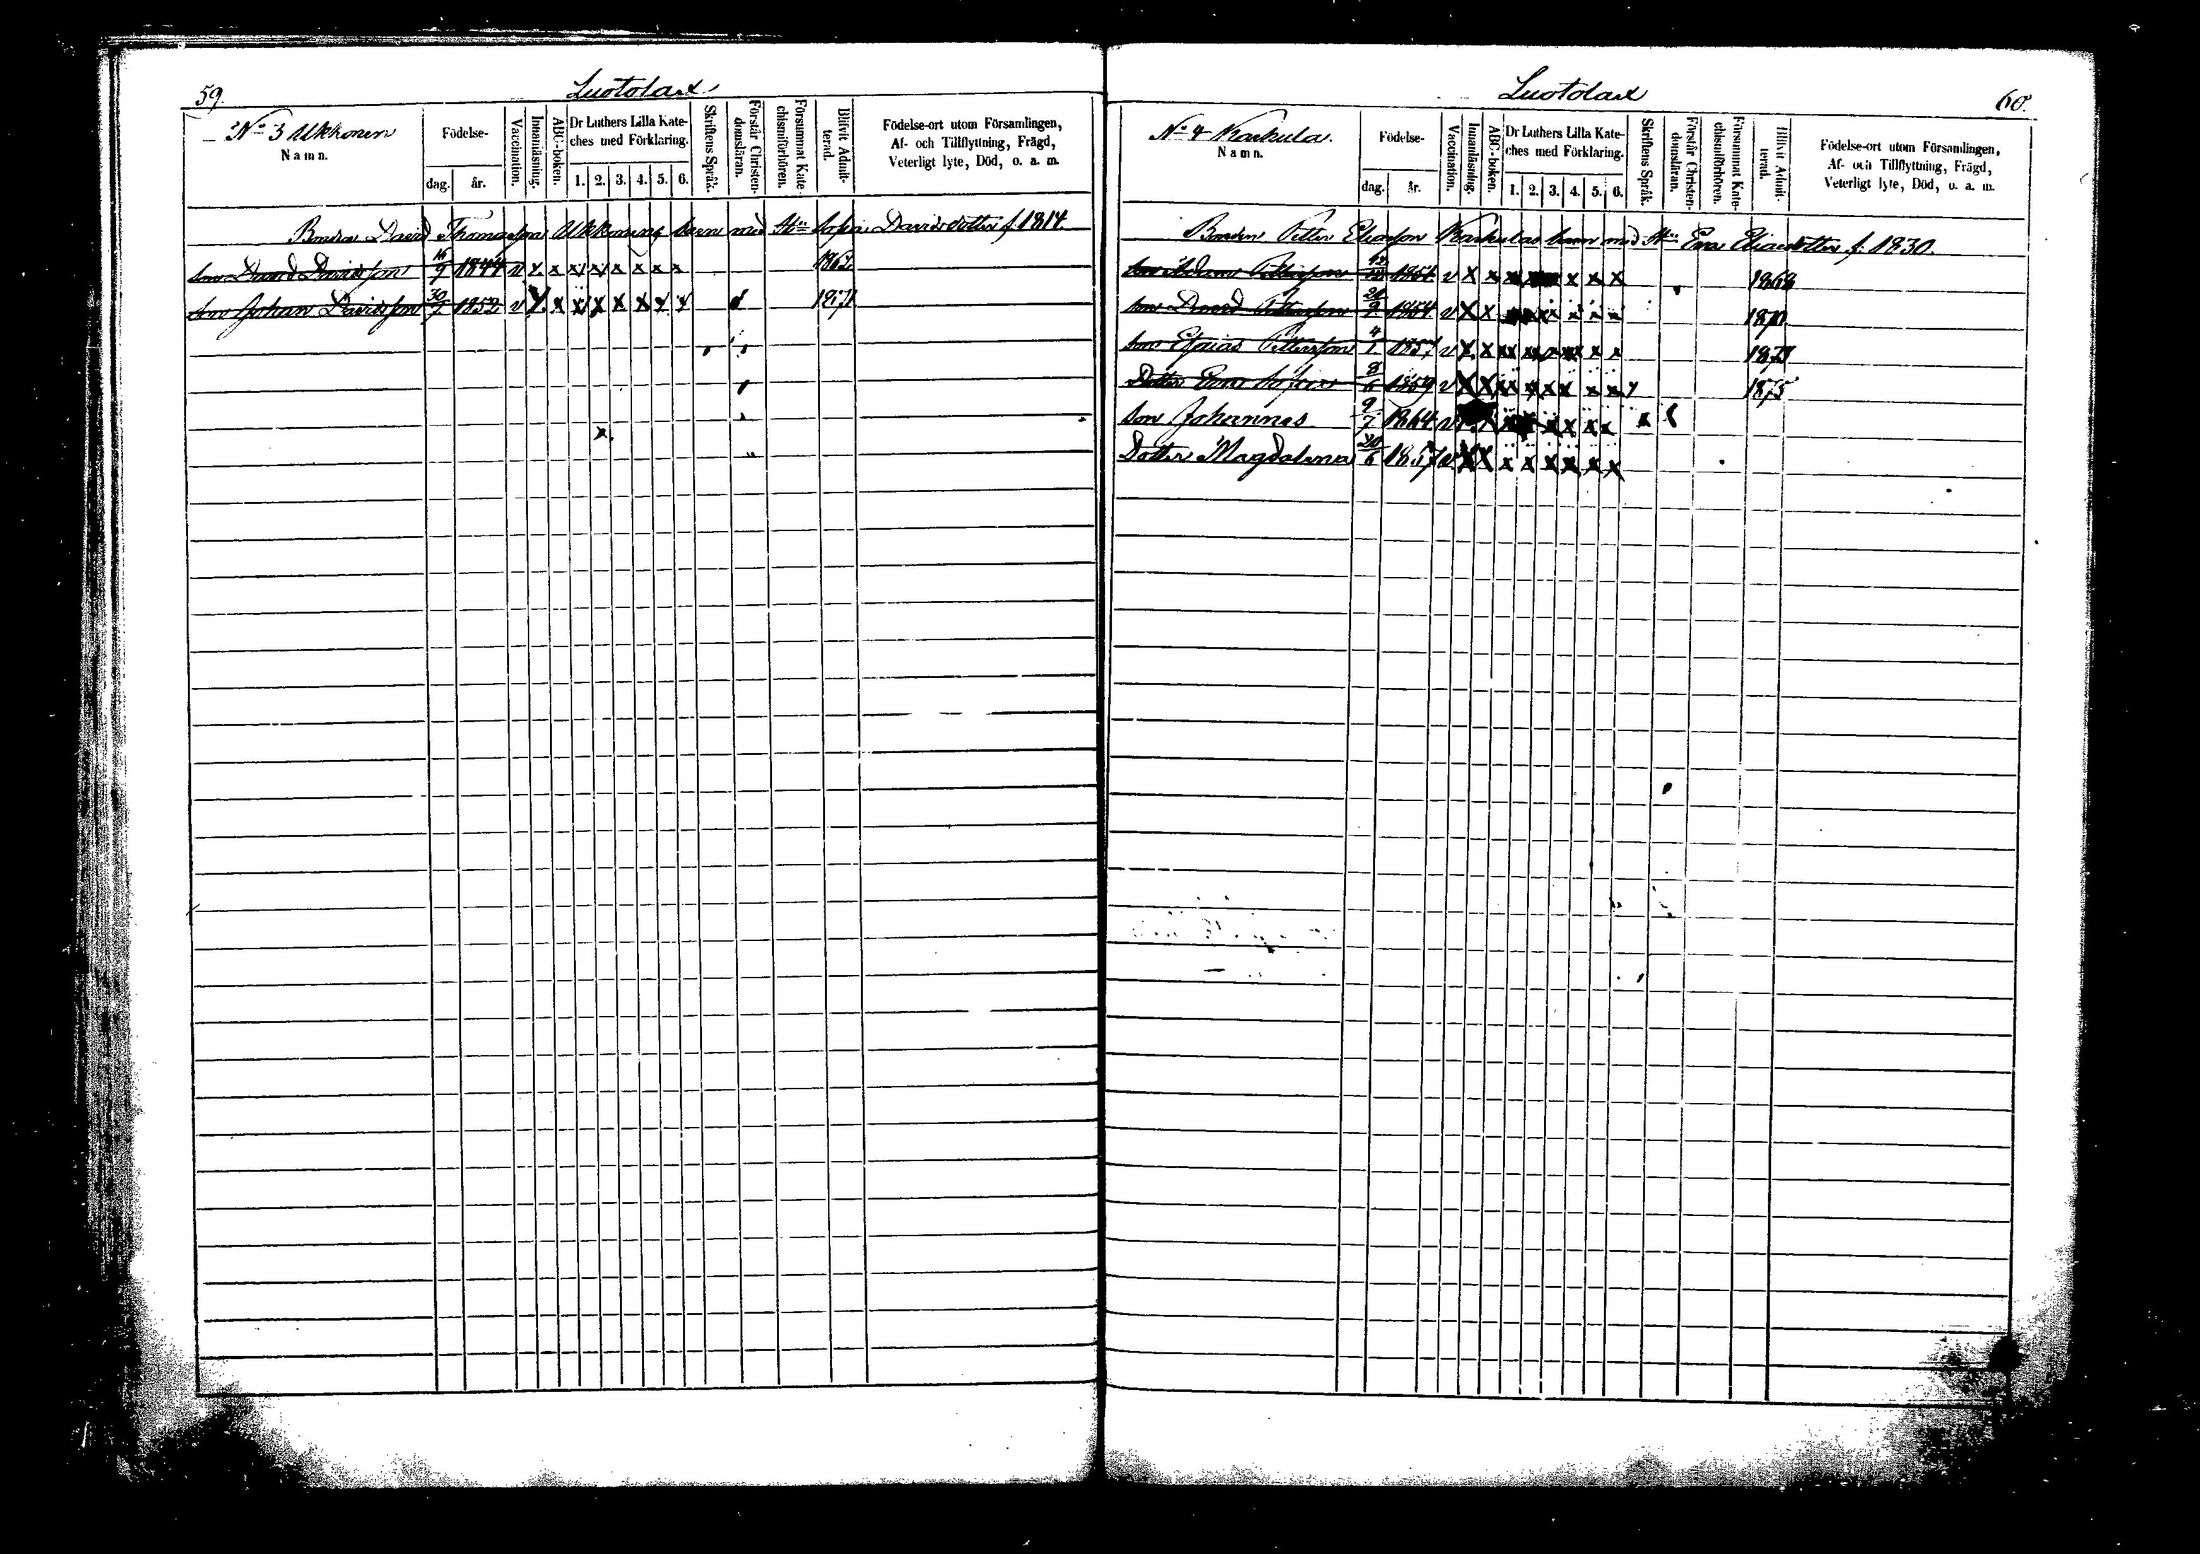 59.
Luotolax
No 3 Ukkonen
Namn.
Födelse-
dag.
år.
Vaccination.
Innanläsning.
ABC-boken.
Dr Luthers Lilla Kate-
ches med Förklaring.
1. 2. 3. 4. 5. 6.
Skriftens Språk.
Förstår Christen-
domsläran.
Försummat Kate-
chismiförhören.
Blifvit Admit-
terad.
Födelse-ort utom Församlingen,
Af- och Tillflyttning, Frägd,
Veterligt lyte, Död, o. a. m.
Bonden David Thomasson Ukkonens barn med H:u Sofia Davidsdotter f. 1814.
Son David Davidsson 9 1844 v x x x x x x x x 1862
Son Johan Davidsson 30/7 1852 v x x x x x x x x 1871
60.
Luotolax
No 4 Karkula.
Namn.
Födelse-
dag.
år.
Vaccination.
Innanläsning.
ABC-boken.
Dr Luthers Lilla Kate-
ches med Förklaring.
1. 2. 3. 4. 5. 6.
Skriftens Språk.
Förstår Christen-
domsläran.
Försummat Kate-
chismiförhören.
Blifvit Admit-
terad.
Födelse-ort utom Församlingen,
Af- och Tillflyttning, Frägd,
Veterligt lyte, Död, o. a. m.
Bonden Petter Eliasson Karkulas barn med H:u Eva Eliasdotter f. 1830.
Son Adam Pettersson v x x x x x x 1868
Son David Pettersson 1854 v x x x x x x 1870
Son Esaias Pettersson 4/1 1857 v x x x x x x x x
Dotter Eva Sofia 8/6 1859 v x x x x x x x x 1875
Son Johannes 9/7 1864 v x x x x x
Dotter Magdalena 20/6 1867 v x x x x x x x x